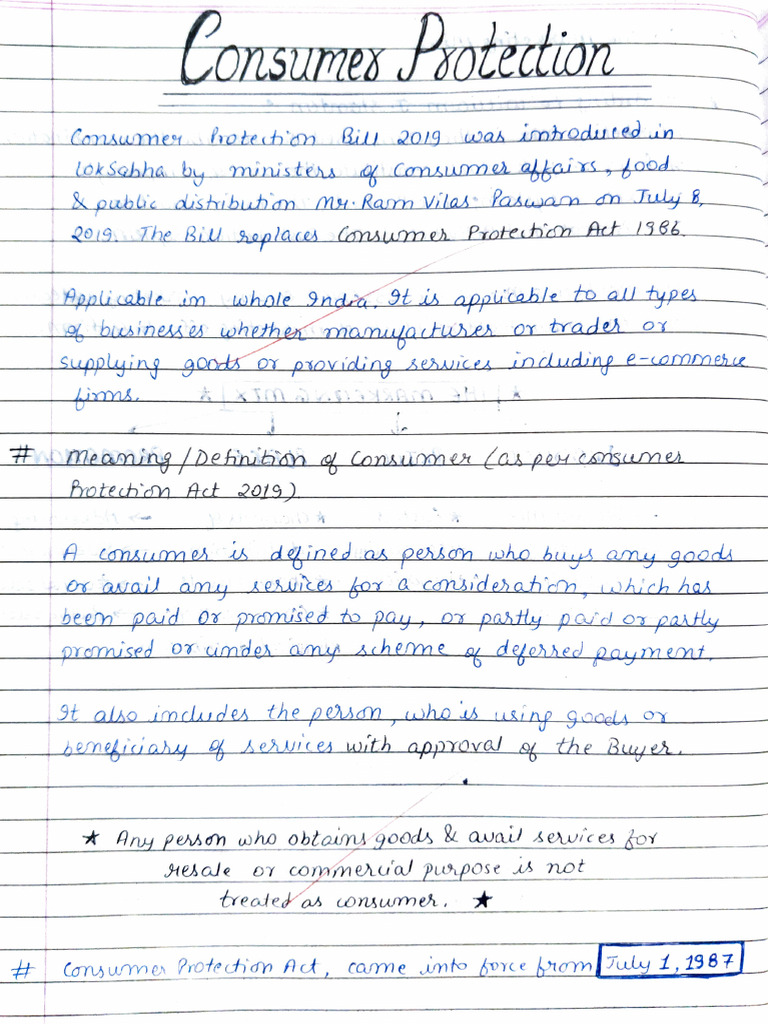 Consumer Protection
Consumer Protection Bill 2019 was introduced in
LokSabha by ministers of Consumer affairs, food
& public distribution Mr. Ram Vilas Paswan on July 8,
2019. The Bill replaces Consumer Protection Act 1986.
Applicable in whole India. It is applicable to all types
of businesses whether manufactures or trader or
supplying goods or providing services including e-commerce
firms.
# Meaning/Definition of Consumer (as per consumer
Protection Act 2019)
A consumer is defined as person who buys any goods
or avail any services for a consideration, which has
been paid or promised to pay, or partly paid or partly
promised or under any scheme of deferred payment.
It also includes the person, who is using goods or
beneficiary of services with approval of the Buyer.
★ Any person who obtains goods & avail services for
resale or commercial purpose is not
treated as consumer. ★
# Consumer Protection Act, came into force from July 1, 1987